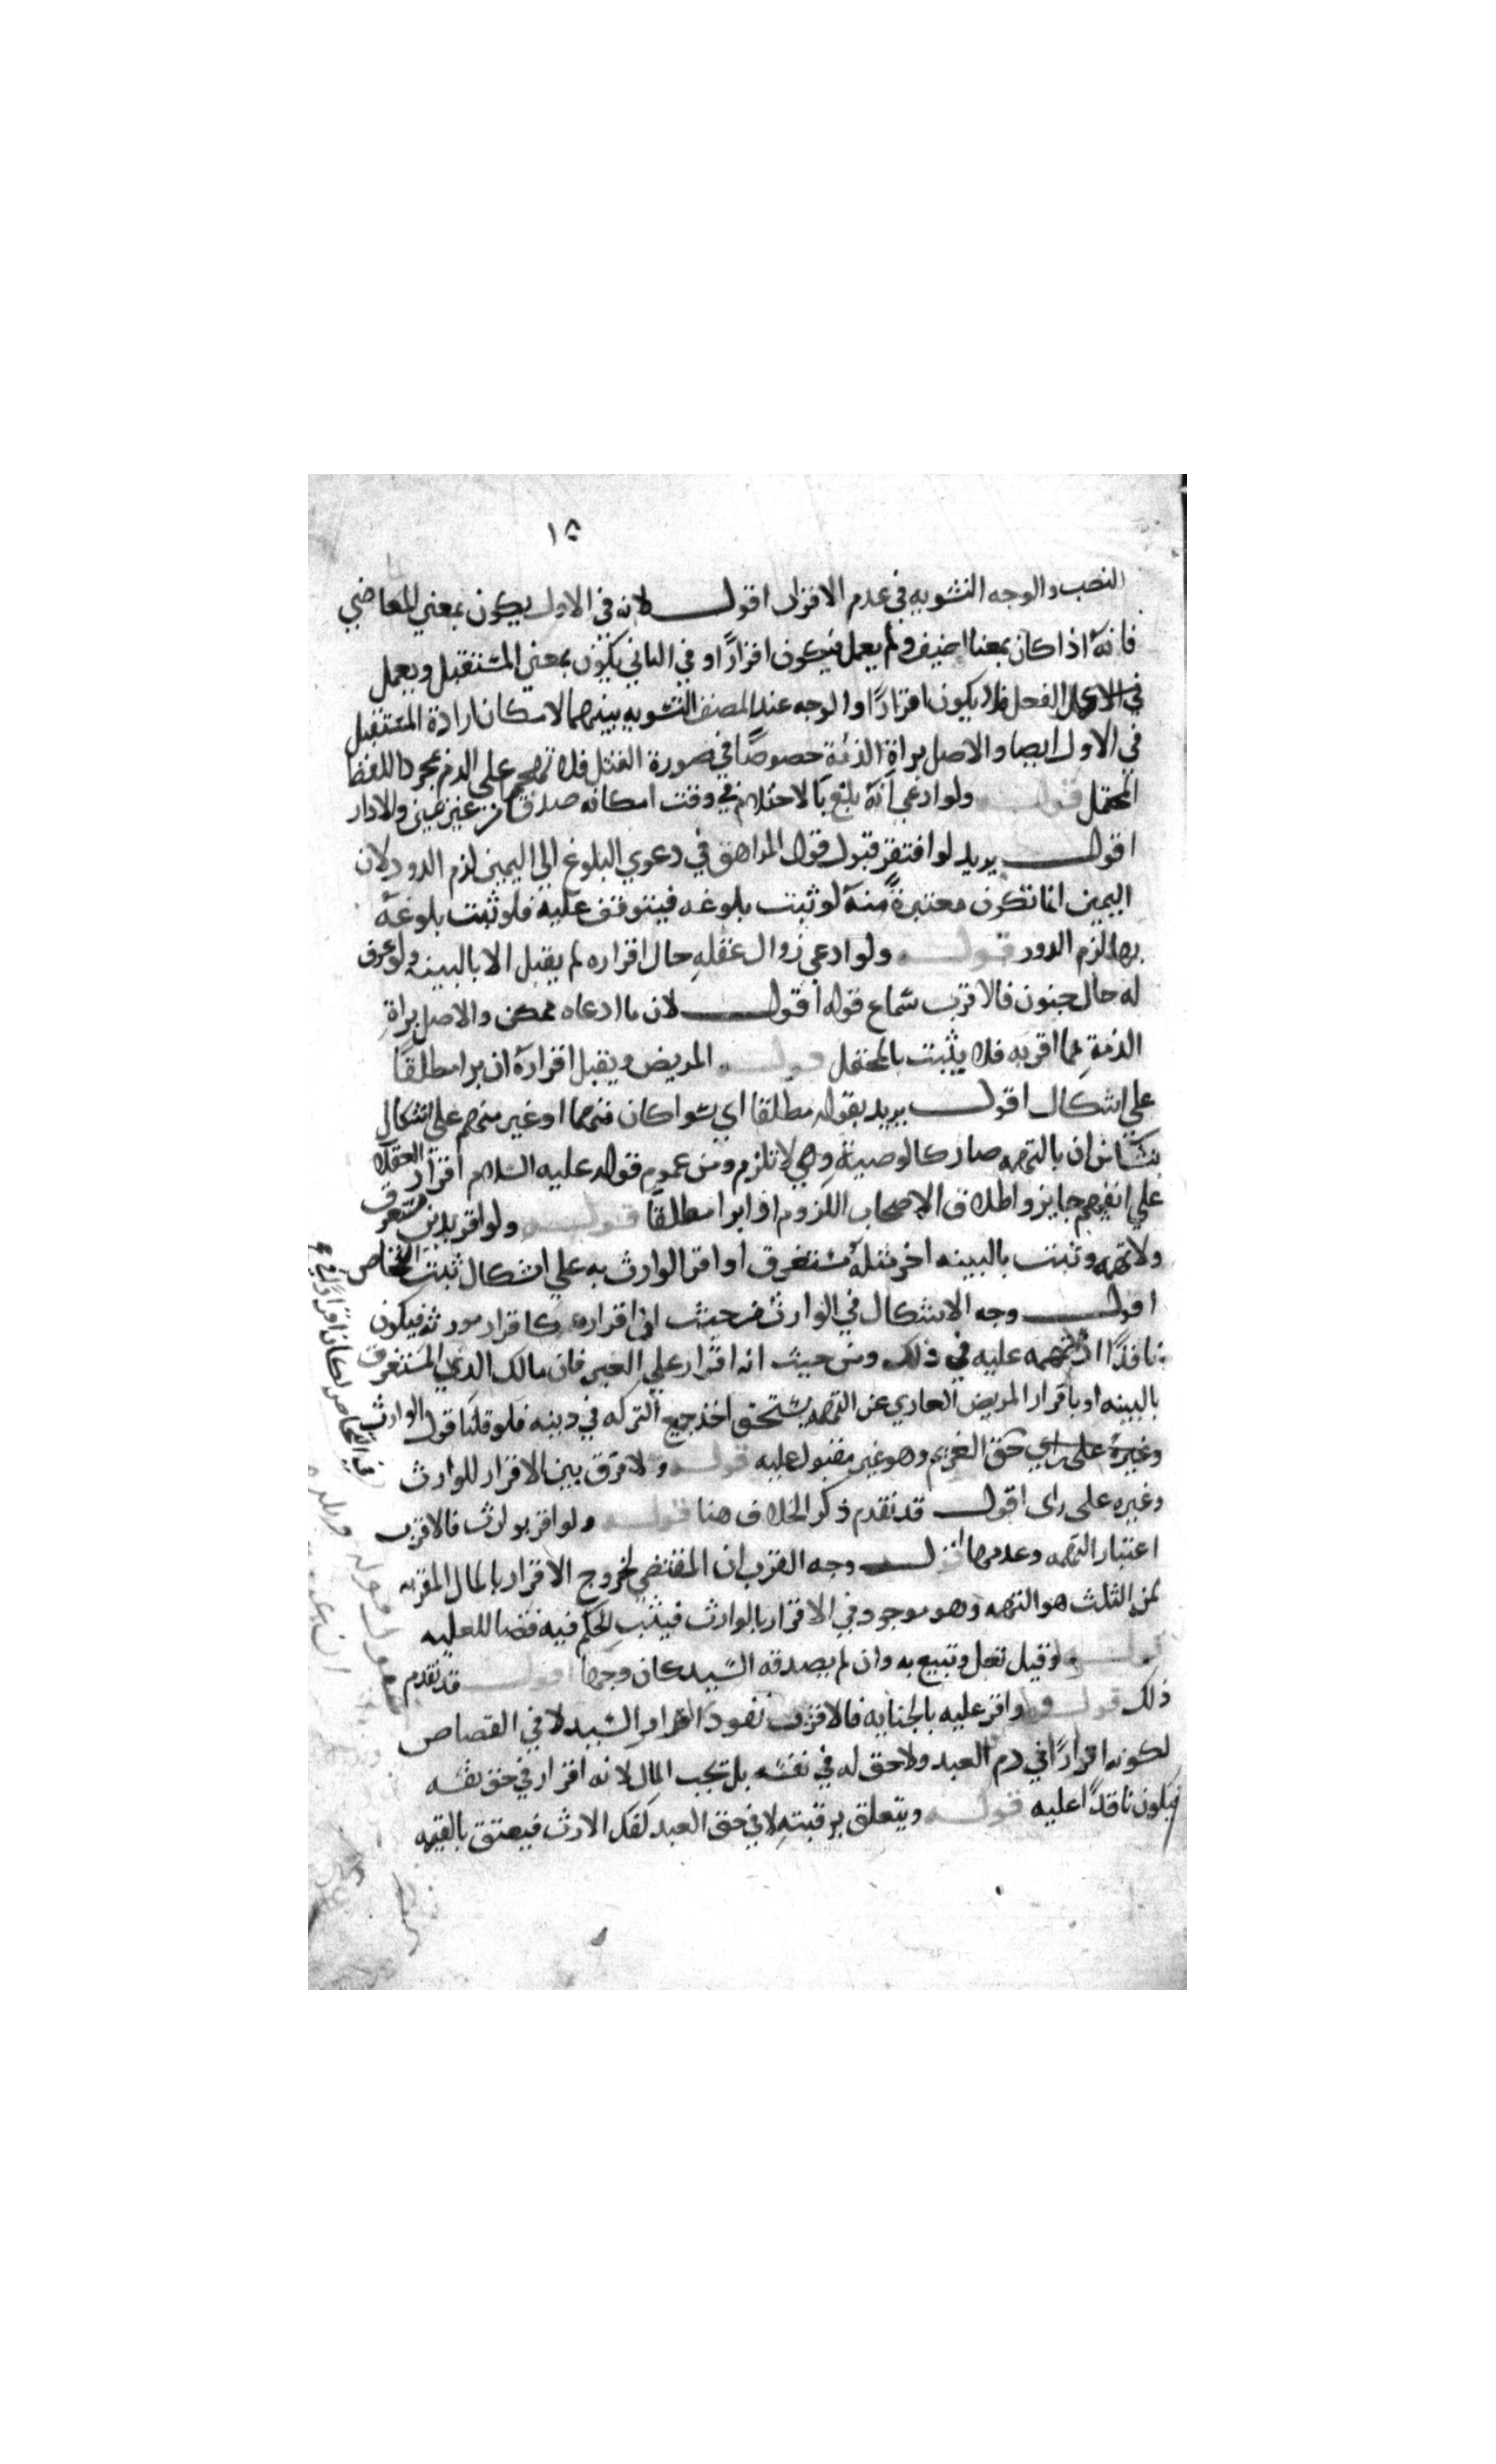 ١٥
النصب والوجه التسويه في عدم الاقرار اقول لانه في الاول يكون بمعني الماضي
فانه اذا كان بمعناه اضيف ولم يعمل فيكون اقرارًا وفي الثاني يكون بمعني المستقبل ويعمل
الفعل فلا يكون اقرارًا والوجه عند المصنف التسويه بينهما لامكان ارادة المستقبل
في الاول ايضا والاصل براة الذمة خصوصًا في صورة القتل فلا تهجم علي الدم بمجرد اللفظ
المحتمل قوله ولو ادعي انه بلغ بالاحتلام في وقت امكانه صدق من غير يمين والا دار
اقول يريد لو افتقر قبول قول المراهق في دعوي البلوغ الي اليمين لزم الدور لان
اليمين انما تكون معتبرة منه لو ثبت بلوغه فيتوقف عليه فلو ثبت بلوغه
بها لزم الدور قوله ولو ادعي زوال عقله حال اقراره لم يقبل الا بالبينه ولو عرف
له حال جنون فالاقرب سماع قوله اقول لان ما ادعاه ممكن والاصل براة
الذمة مما اقر به فلا يثبت بالمحتمل قوله المريض ويقبل اقراره ان برا مطلقًا
علي اشكال اقول يريد بقوله مطلقا اي سوا كان متهما او غير متهم علي اشكال
ينشا من ان بالتهمه صار كالوصية وهي لا تلزم ومن عموم قوله عليه السلام اقرار العقلا
علي انفسهم جايز واطلاق الاصحاب اللزوم اذا برا مطلقًا قوله ولو اقر بدين مستغرق
ولا تهمه وثبت بالبينه اخر مثله مستغرق او اقر الوارث به علي اشكال ثبت التحاص
اقول وجه الاشكال في الوارث من حيث ان اقراره كاقرار مورثه فيكون
نافذًا اذ لا تهمه عليه في ذلك ومن حيث انه اقرار علي الغير فان مالك الدين المستغرق
بالبينه او باقرار المريض العاري عن التهمه يستحق اخذ جميع التركه في دينه فلو قلنا قول الوارث
في التحاص لكان اقرارًا في
حق الغريم وهو غير مقبول عليه قوله ولا فرق بين الاقرار للوارث
وغيره علي راي اقول قد تقدم ذكر الخلاف هنا قوله ولو اقر بوارث فالاقرب
اعتبار التهمه وعدمها اقول وجه القرب ان المقتضي لخروج الاقرار بالمال المقر به
من الثلث هو التهمه وهو موجود في الاقرار بالوارث فيثبت الحكم فيه قضا للعليه
قوله لو قيل تقبل ويتبع به وان لم يصدقه السيد كان وجها اقول قد تقدم
ذلك قوله ولو اقر عليه بالجنايه فالاقرب نفوذ اقرار السيد لا في القصاص
لكونه اقرارًا في دم العبد ولا حق له في نفسه بل تجب المال لانه اقرار في حق نفسه
فيكون نافذًا عليه قوله ويتعلق برقبته لا في حق العبد كفك الارث فيعتق بالقيمه